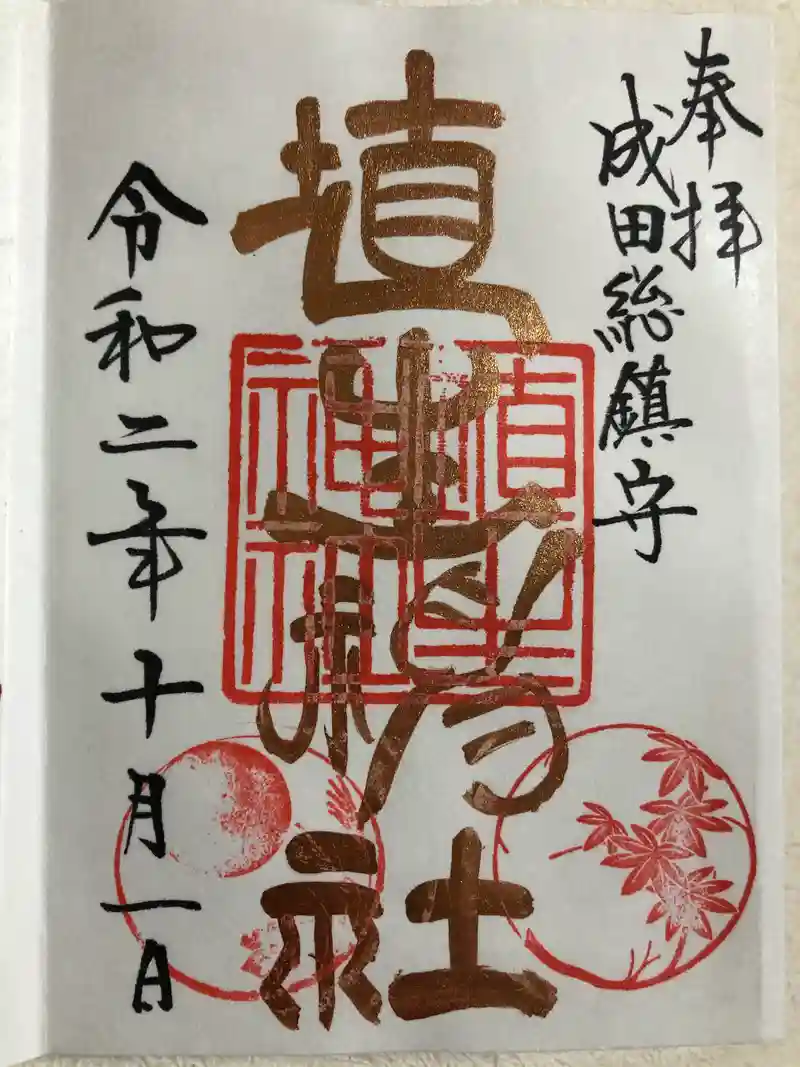 奉拝
成田総鎮守
埴生神社
埴生
神社
令和二年十月一日